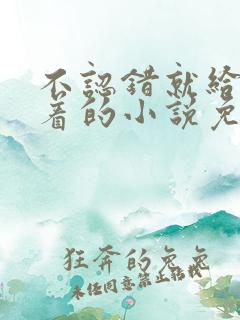 不認錯就給
着的小說免
狂奔的兔兔
未经同意禁止转载